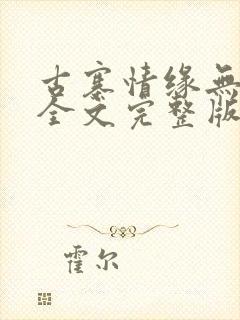 古寨情缘無
全文完整版
霍尔